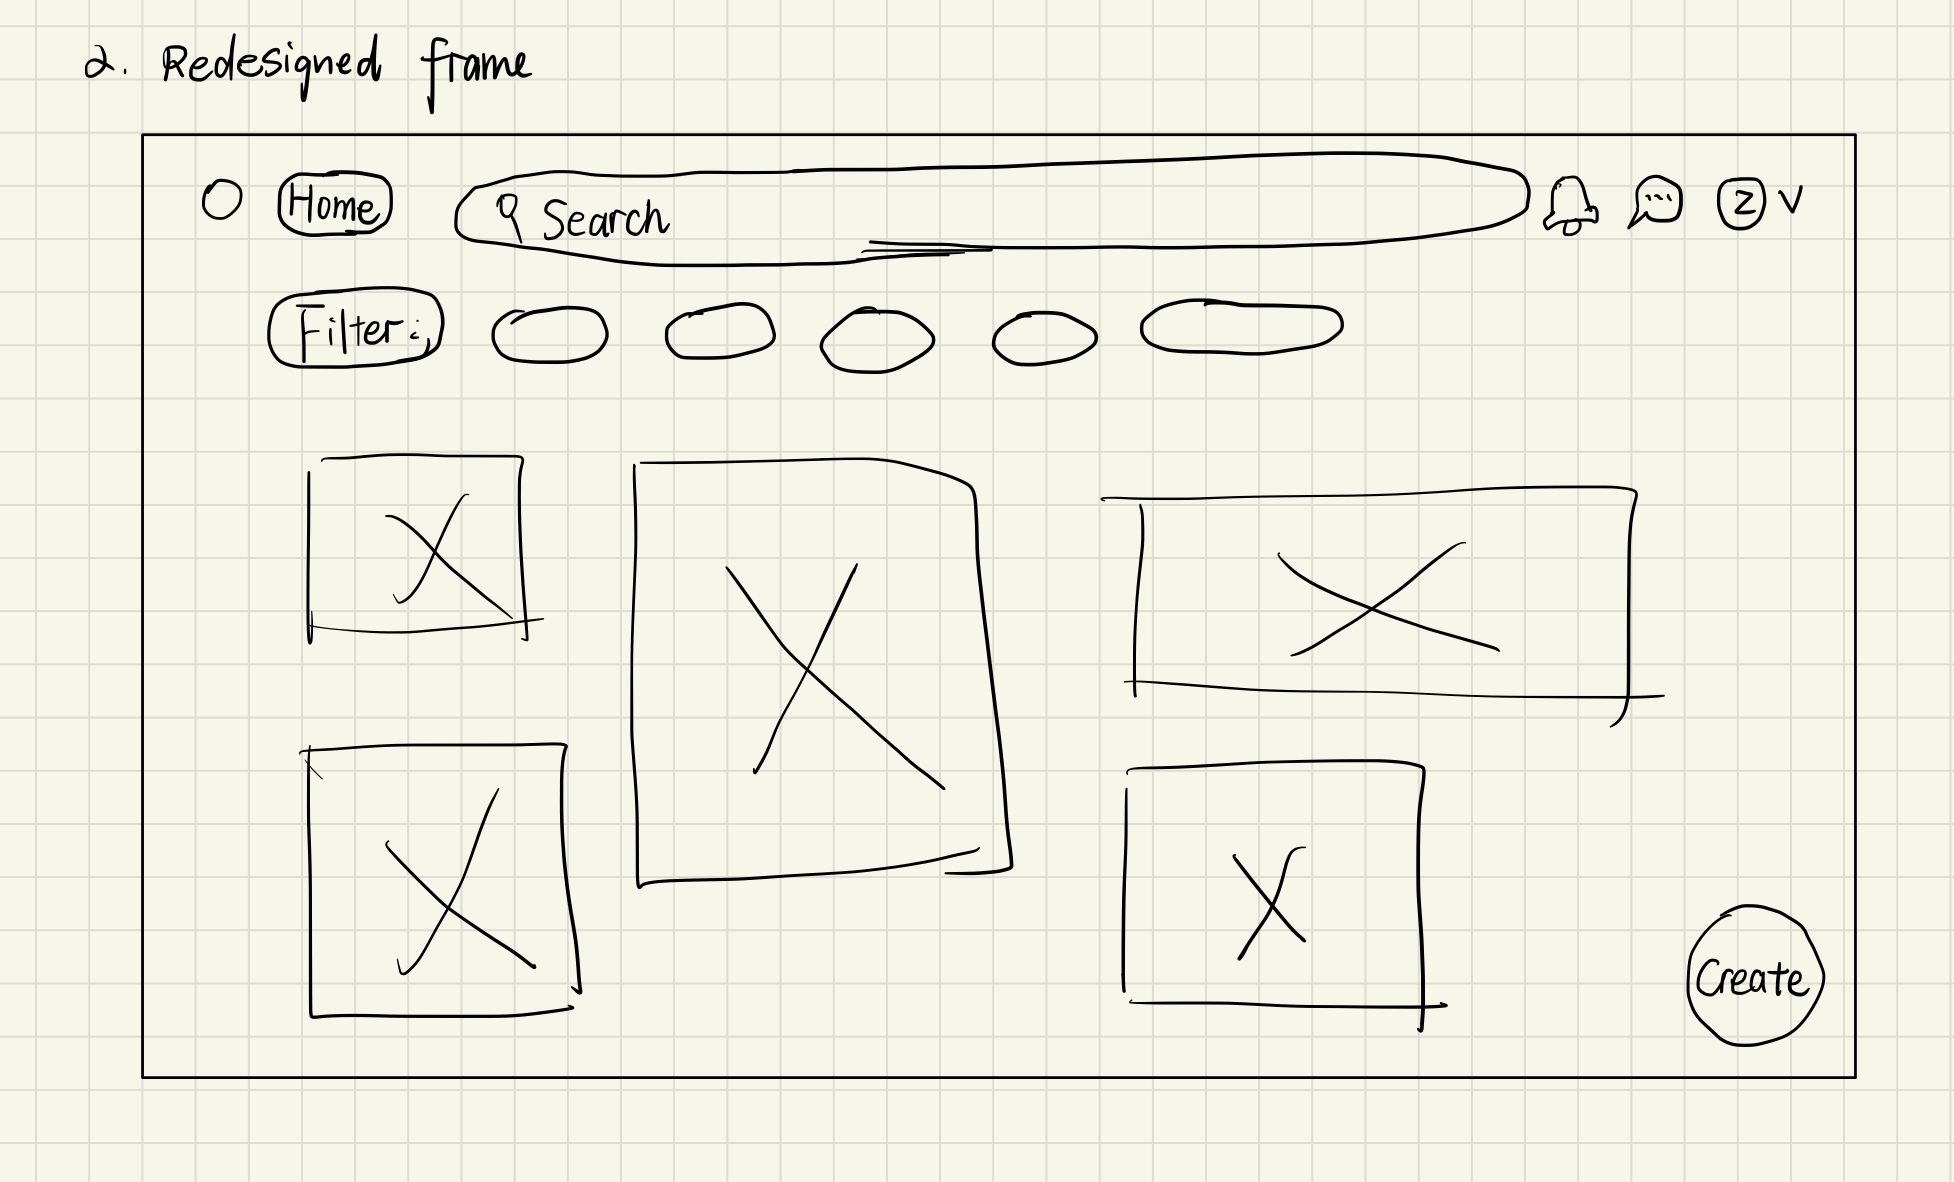 2. Redesigned frame
Home
Search
Z
Filter:
Create